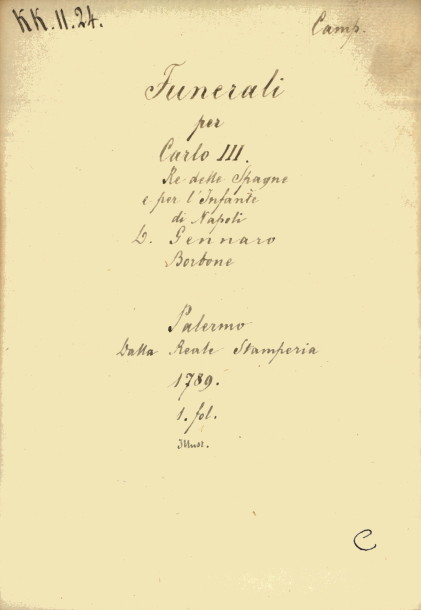 KK.11.24.
Camp.
Funerali
per
Carlo III.
Re delle Spagne
e per l'Infante
di Napoli
D. Gennaro
Borbone
Palermo
Dalla Reale Stamperia
1789.
1. fol.
Illust.
C